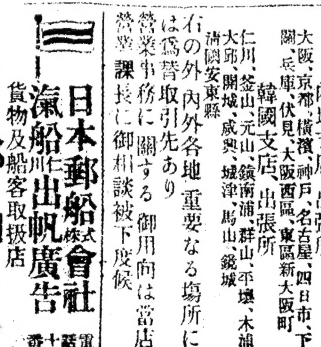 大阪、京都、橫濱、神戶、名古屋、四日市、下
關、兵庫、伏見、大阪西區、東區新大阪町
韓國支店、出張所
仁川、釜山、元山、鎮南浦、群山、平壤、木浦
大邱、開城、咸興、城津、馬山、鏡城
淸國安東縣
右の外內外各地重要なる塲所に
は爲替取引先あり
營業事務に關する御用向は當店
營業課長に御相談被下度候
日本郵船株式會社
汽船仁川出帆廣告
貨物及船客取扱店